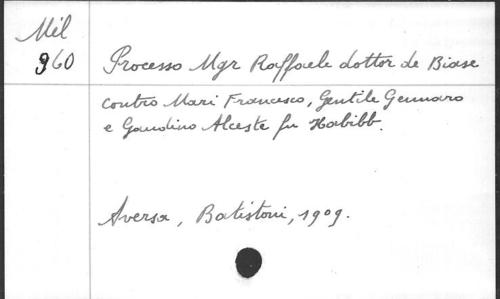 Mil
960
Processo Mgr Raffaele dottor de Biase
contro Mari Francesco, Gentile Gennaro
e Gaudino Alceste fu Habibb.
Aversa, Batistoni, 1909.